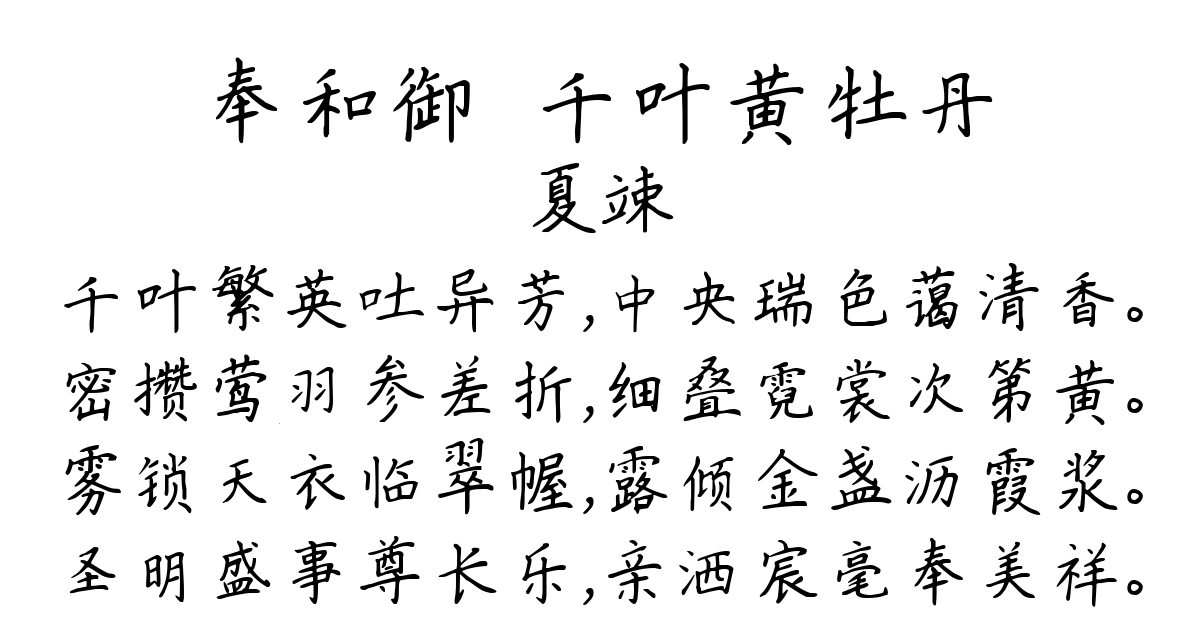 奉和御 千叶黄牡丹
夏竦
千叶繁英吐异芳,中央瑞色蔼清香。
密攒莺羽参差折,细叠霓裳次第黄。
雾锁天衣临翠幄,露倾金盏沥霞浆。
圣明盛事尊长乐,亲洒宸毫奉美祥。